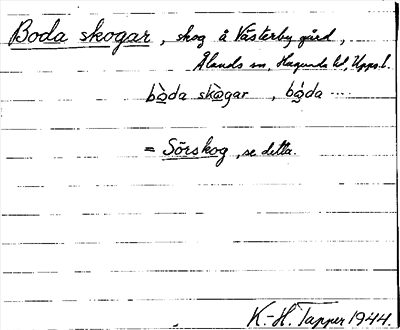 Boda skogar, skog å Västerby gård,
Ålands sn, Hagunda hd, Upps. l.
bò̱da skò̱gar, bó̱da ...
= Sörskog, se detta.
K.-H. Tapper 1944.